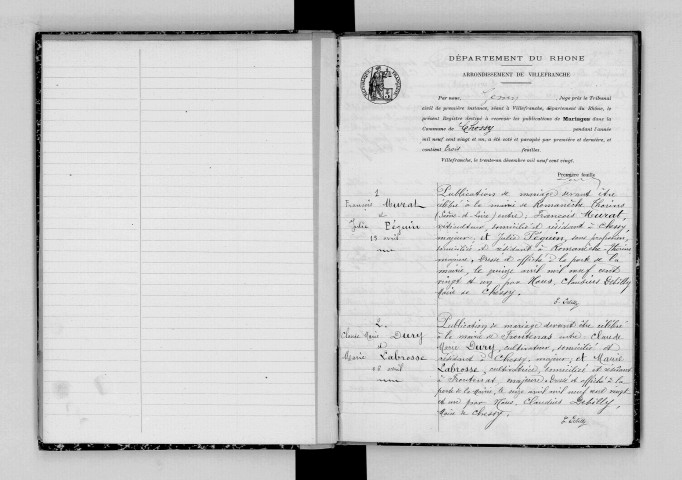 DÉPARTEMENT DU RHONE
ARRONDISSEMENT DE VILLEFRANCHE
Par nous, Juge près le Tribunal
civil de première instance, séant à Villefranche, département du Rhône, le
présent Registre destiné à recevoir les publications de Mariages dans la
Commune de Chessy pendant l'année
mil neuf cent vingt et un, a été coté et paraphé par première et dernière, et
contient trois feuilles.
Villefranche, le trente-un décembre mil neuf cent vingt.
Première feuille
1
François Murat
et
Julie Péguin
15 avril
Publications de mariage devant être
célébré à la mairie de Romanèche Thorins
(Saône et Loire) entre: François Murat,
viticulteur, domicilié et résidant à Chessy,
majeur, et Julie Péguin, sans profession,
domiciliée et résidant à Romanèche Thorins
majeure. Dressé et affiché à la porte de la
mairie, le quinze avril mil neuf cent
vingt et un par Nous, Claudius Debilly
Maire de Chessy.
C. Debilly
2.
Claude Marie Dury
et
Marie Labrosse
avril
Publication de mariage devant être célébré
à la mairie de Frontenas entre: Claude
Marie Dury, cultivateur, domicilié et
résidant à Chessy, majeur, et Marie
Labrosse, cultivatrice, domiciliée et résidant
à Frontenas, majeure. Dressé et affiché à la
porte de la Mairie, le seize avril mil neuf cent vingt
et un par Nous, Claudius Debilly,
Maire de Chessy.
C. Debilly